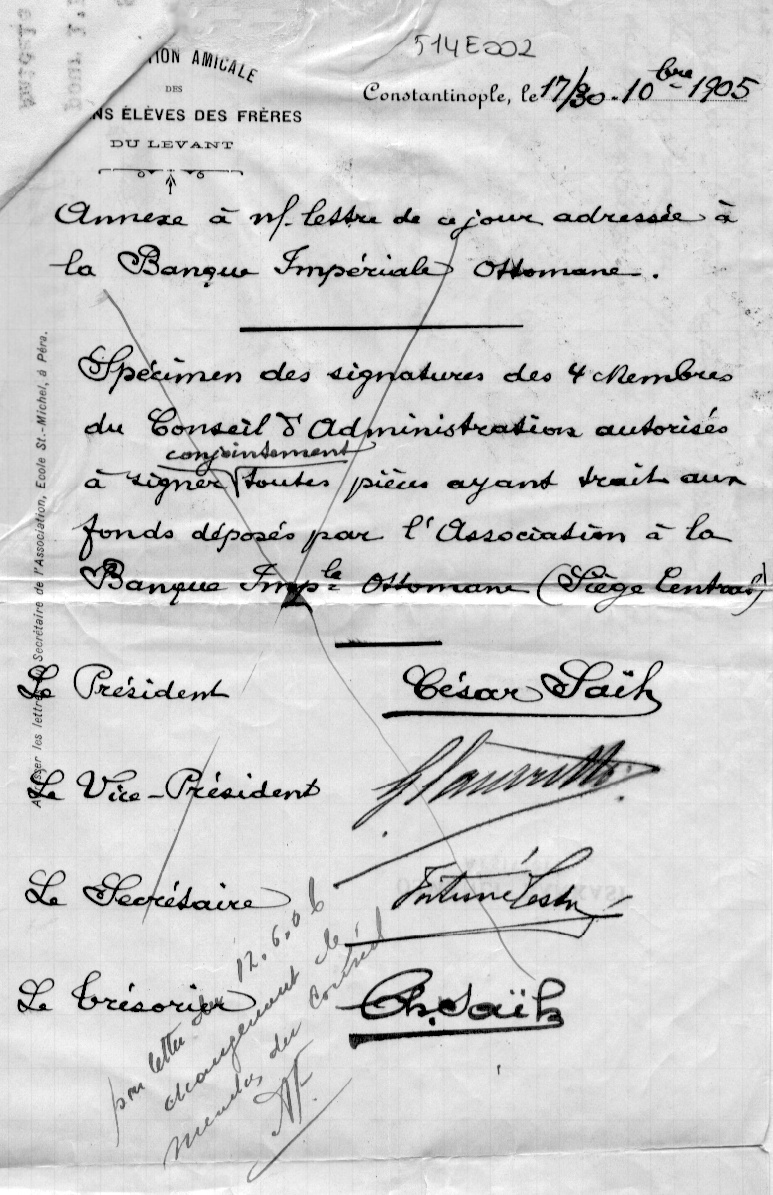 514E002
TION AMICALE
DES
NS ÉLÈVES DES FRÈRES
DU LEVANT
Constantinople, le 17/30 - 10bre 1905
Annexe à n/. lettre de ce jour adressée à
la Banque Impériale Ottomane.
Spécimen des signatures des 4 Membres
du Conseil d'Administration autorisés
conjointement
à signer toutes pièces ayant trait aux
fonds déposés par l'Association à la
Banque Imple Ottomane (Siège Central)
Le Président César Saïh
Le Vice-Président
Le Secrétaire Fortuné
Le Trésorier Ch. Saïh
par lettre du 12.6.06
changement de
membres du Conseil
Adresser les lettres Secrétaire de l'Association, Ecole St.-Michel, à Péra.